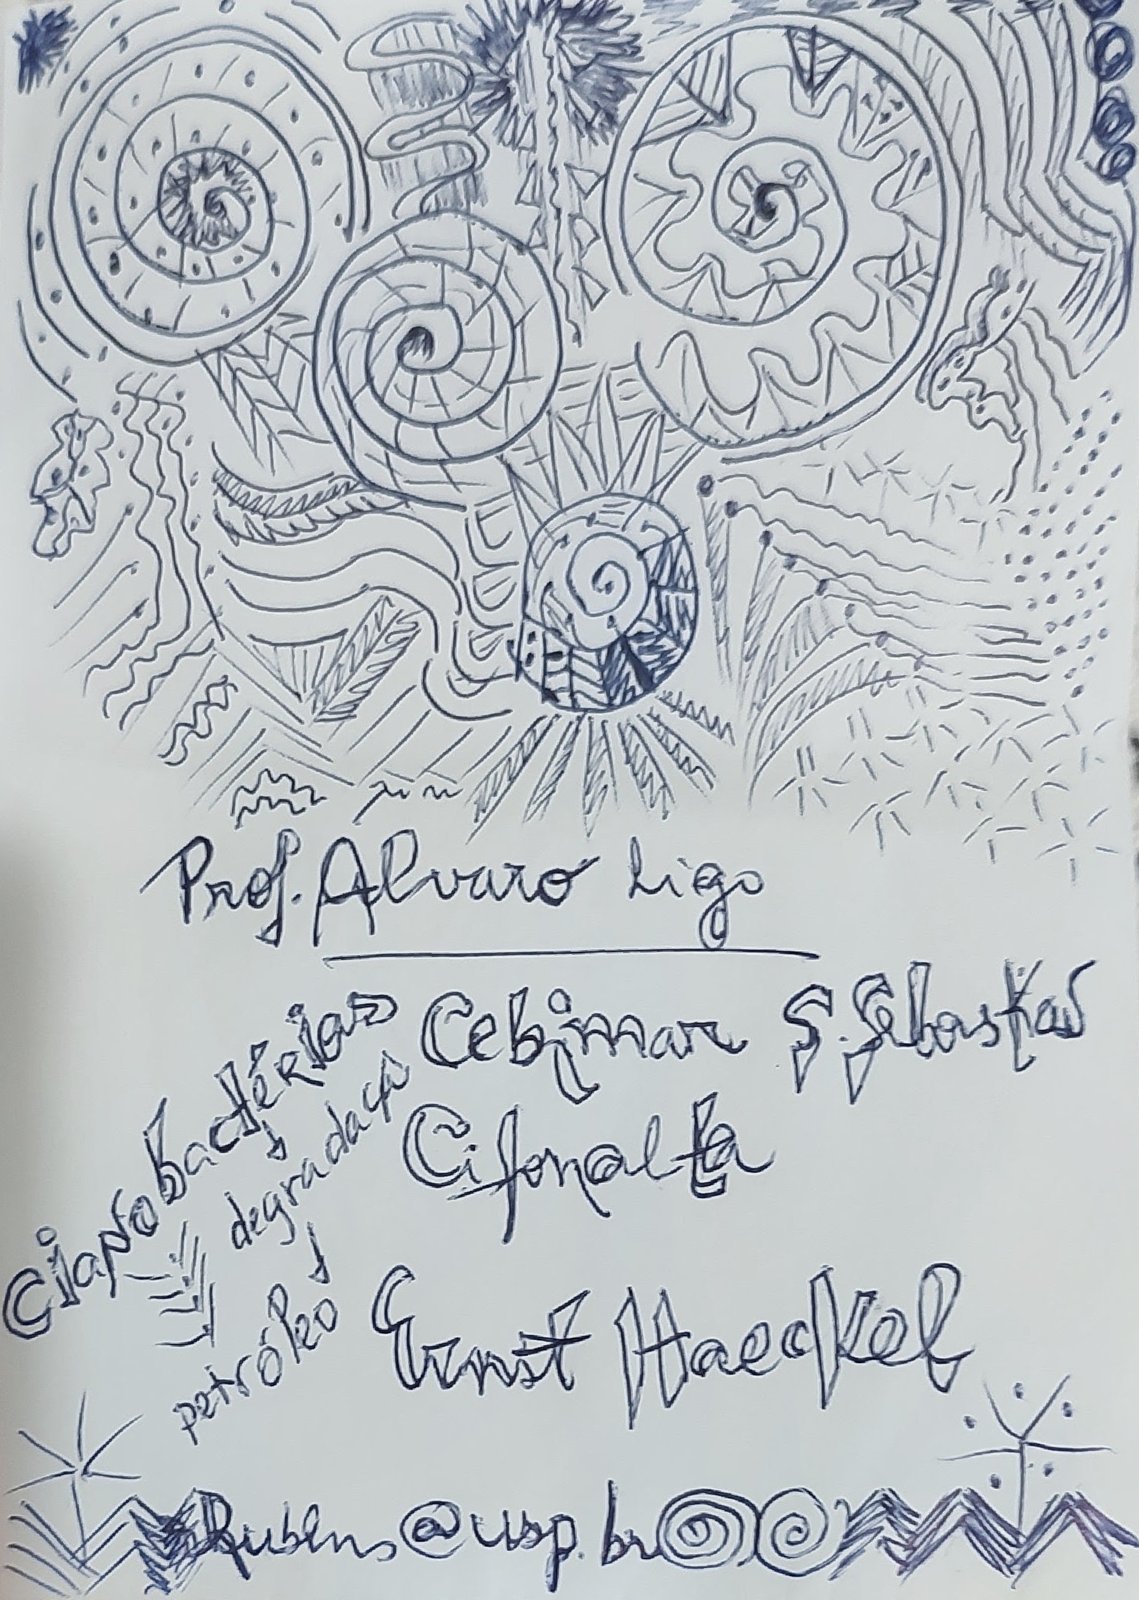 Prof. Alvaro Ligo
Cebimar S. Sebastião
Cifonalta
cianobactérias
degradaçã
petróleo
Ernst Haeckel
Rubens@usp.br